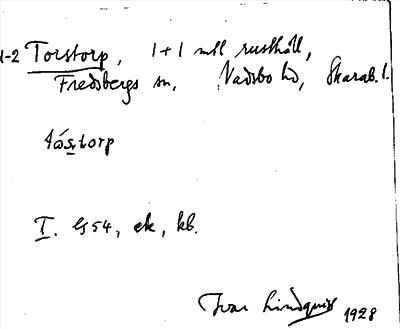 1-2 Torstorp, 1+1 mtl rusthåll,
Fredsbergs sn, Vadsbo hd, Skarab. l.
tåstorp
I. G54, ek, kb.
Ivar Lindquist 1928